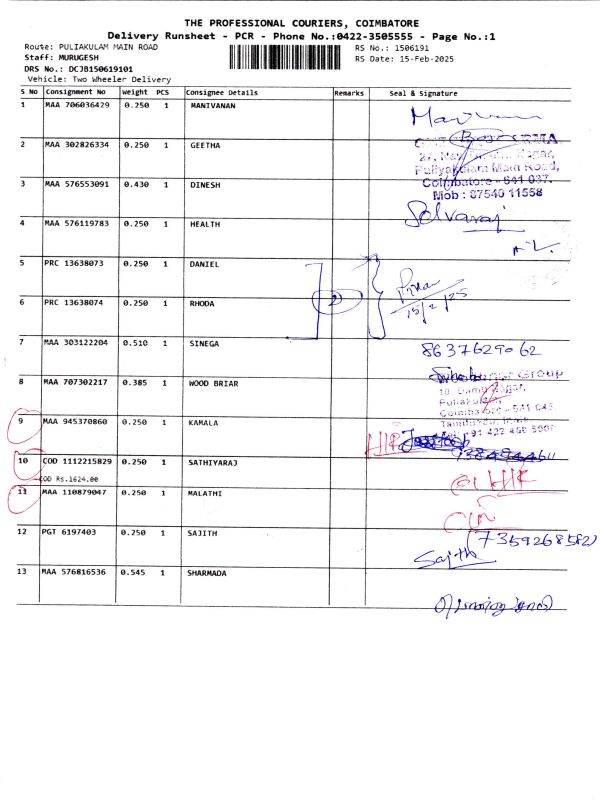 THE PROFESSIONAL COURIERS, COIMBATORE
Delivery Runsheet - PCR - Phone No.:0422-3505555 - Page No.:1
Route: PULIAKULAM MAIN ROAD RS No.: 1506191
Staff: MURUGESH RS Date: 15-Feb-2025
DRS No.: DCJB150619101
Vehicle: Two Wheeler Delivery
S No Consignment No Weight PCS Consignee Details Remarks Seal & Signature
1 MAA 706036429 0.250 1 MANIVANAN
2 MAA 302826334 0.250 1 GEETHA
Puliyakulam Main Road,
3 MAA 576553091 0.430 1 DINESH Coimbatore - 641 037.
Mob : 87540 11558
Selvaraj
4 MAA 576119783 0.250 1 HEALTH
5 PRC 13638073 0.250 1 DANIEL
2 15/2/25
6 PRC 13638074 0.250 1 RHODA
7 MAA 303122204 0.510 1 SINEGA 8637629062
Group
8 MAA 707302217 0.385 1 WOOD BRIAR
9 MAA 945370860 0.250 1 KAMALA
10 COD 1112215829 0.250 1 SATHIYARAJ
COD Rs.1624.00
11 MAA 110879047 0.250 1 MALATHI
12 PGT 6197403 0.250 1 SAJITH (7359268582)
Sajith
13 MAA 576816536 0.545 1 SHARMADA